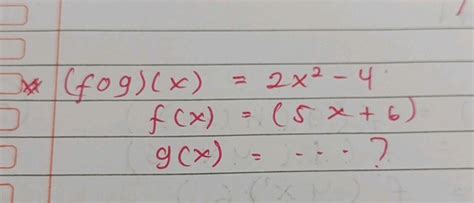 (fog)(x) = 2x² - 4
f(x) = (5x + 6)
g(x) = - - - ?